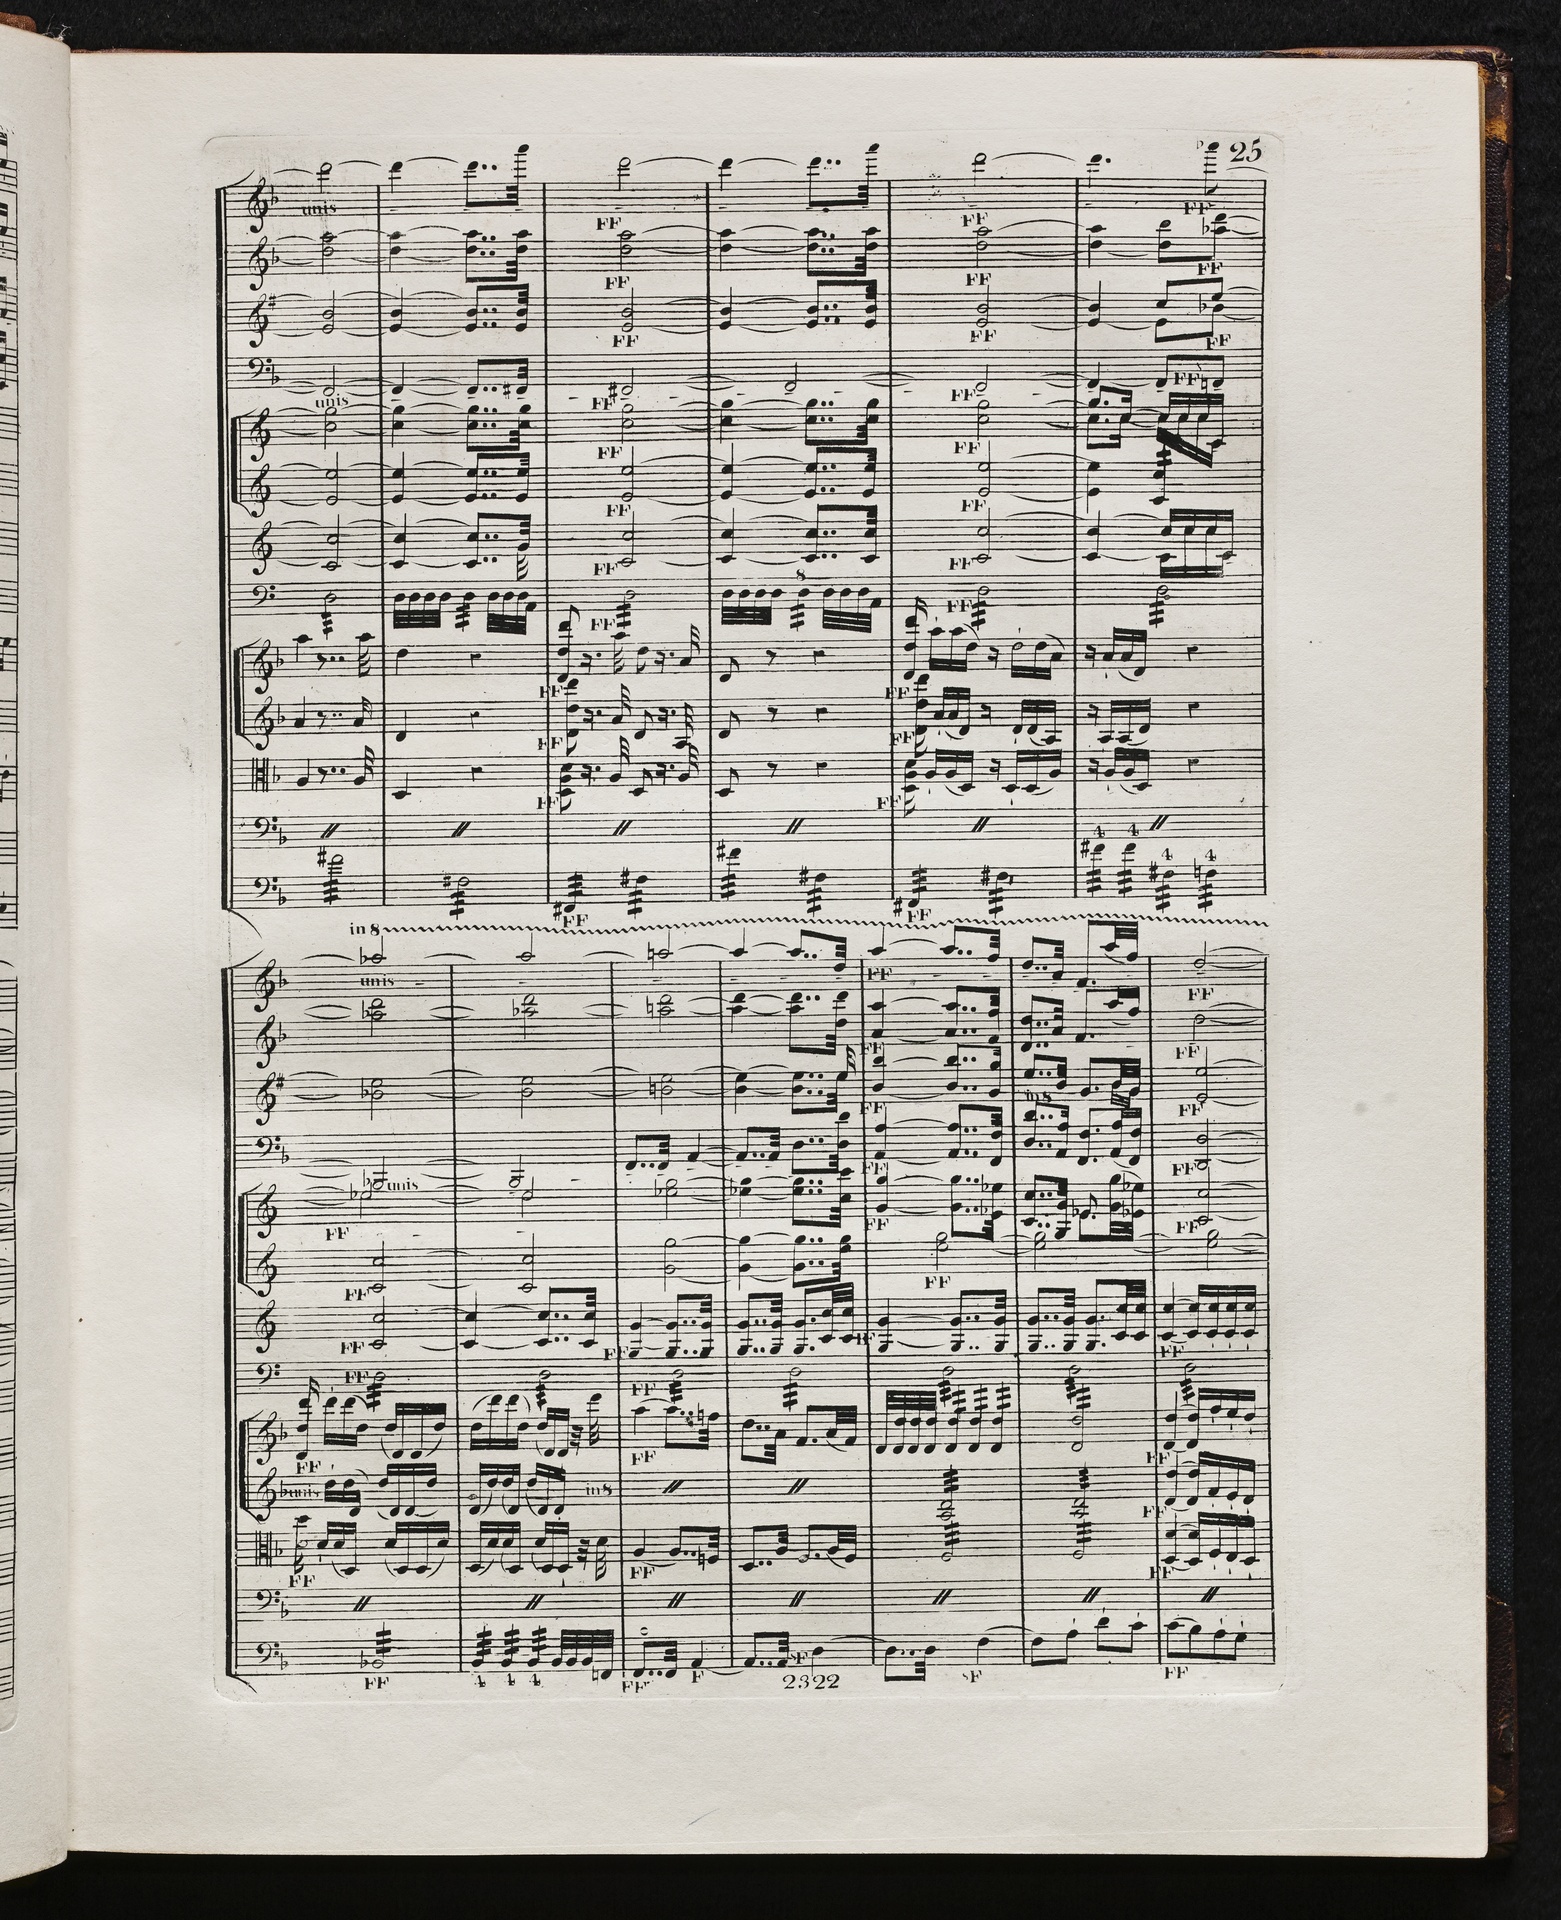 25
unis
FF FF FF
FF FF FF
FF FF FF
unis
FF FF FF
FF FF
FF FF
FF FF
8
FF FF
FF FF
FF FF
FF FF
4 4
4 4
FF FF
in 8
unis
FF FF
FF FF
in 8
FF FF
unis
FF FF
FF FF FF
FF FF
FF FF FF
FF FF
FF FF FF
unis in 8
FF
FF FF FF
FF 4 4 4 FF F SF SF FF
2322